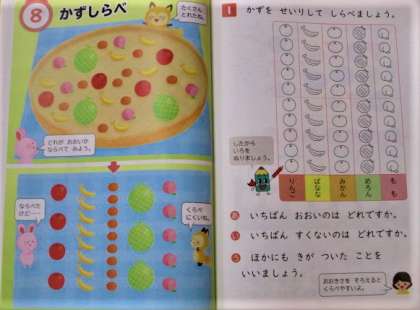 8
かずしらべ
たくさん
とれたね。
どれが おおいか
ならべて みよう。
ならべた
けど…
くらべ
にくいね。
1 かずを せいりして しらべましょう。
したから
いろを
ぬりましょう。
りんご
ばなな
みかん
めろん
もも
あ いちばん おおいのは どれですか。
い いちばん すくないのは どれですか。
う ほかにも きが ついた ことを
いいましょう。
おおきさを そろえると
くらべやすいよ。